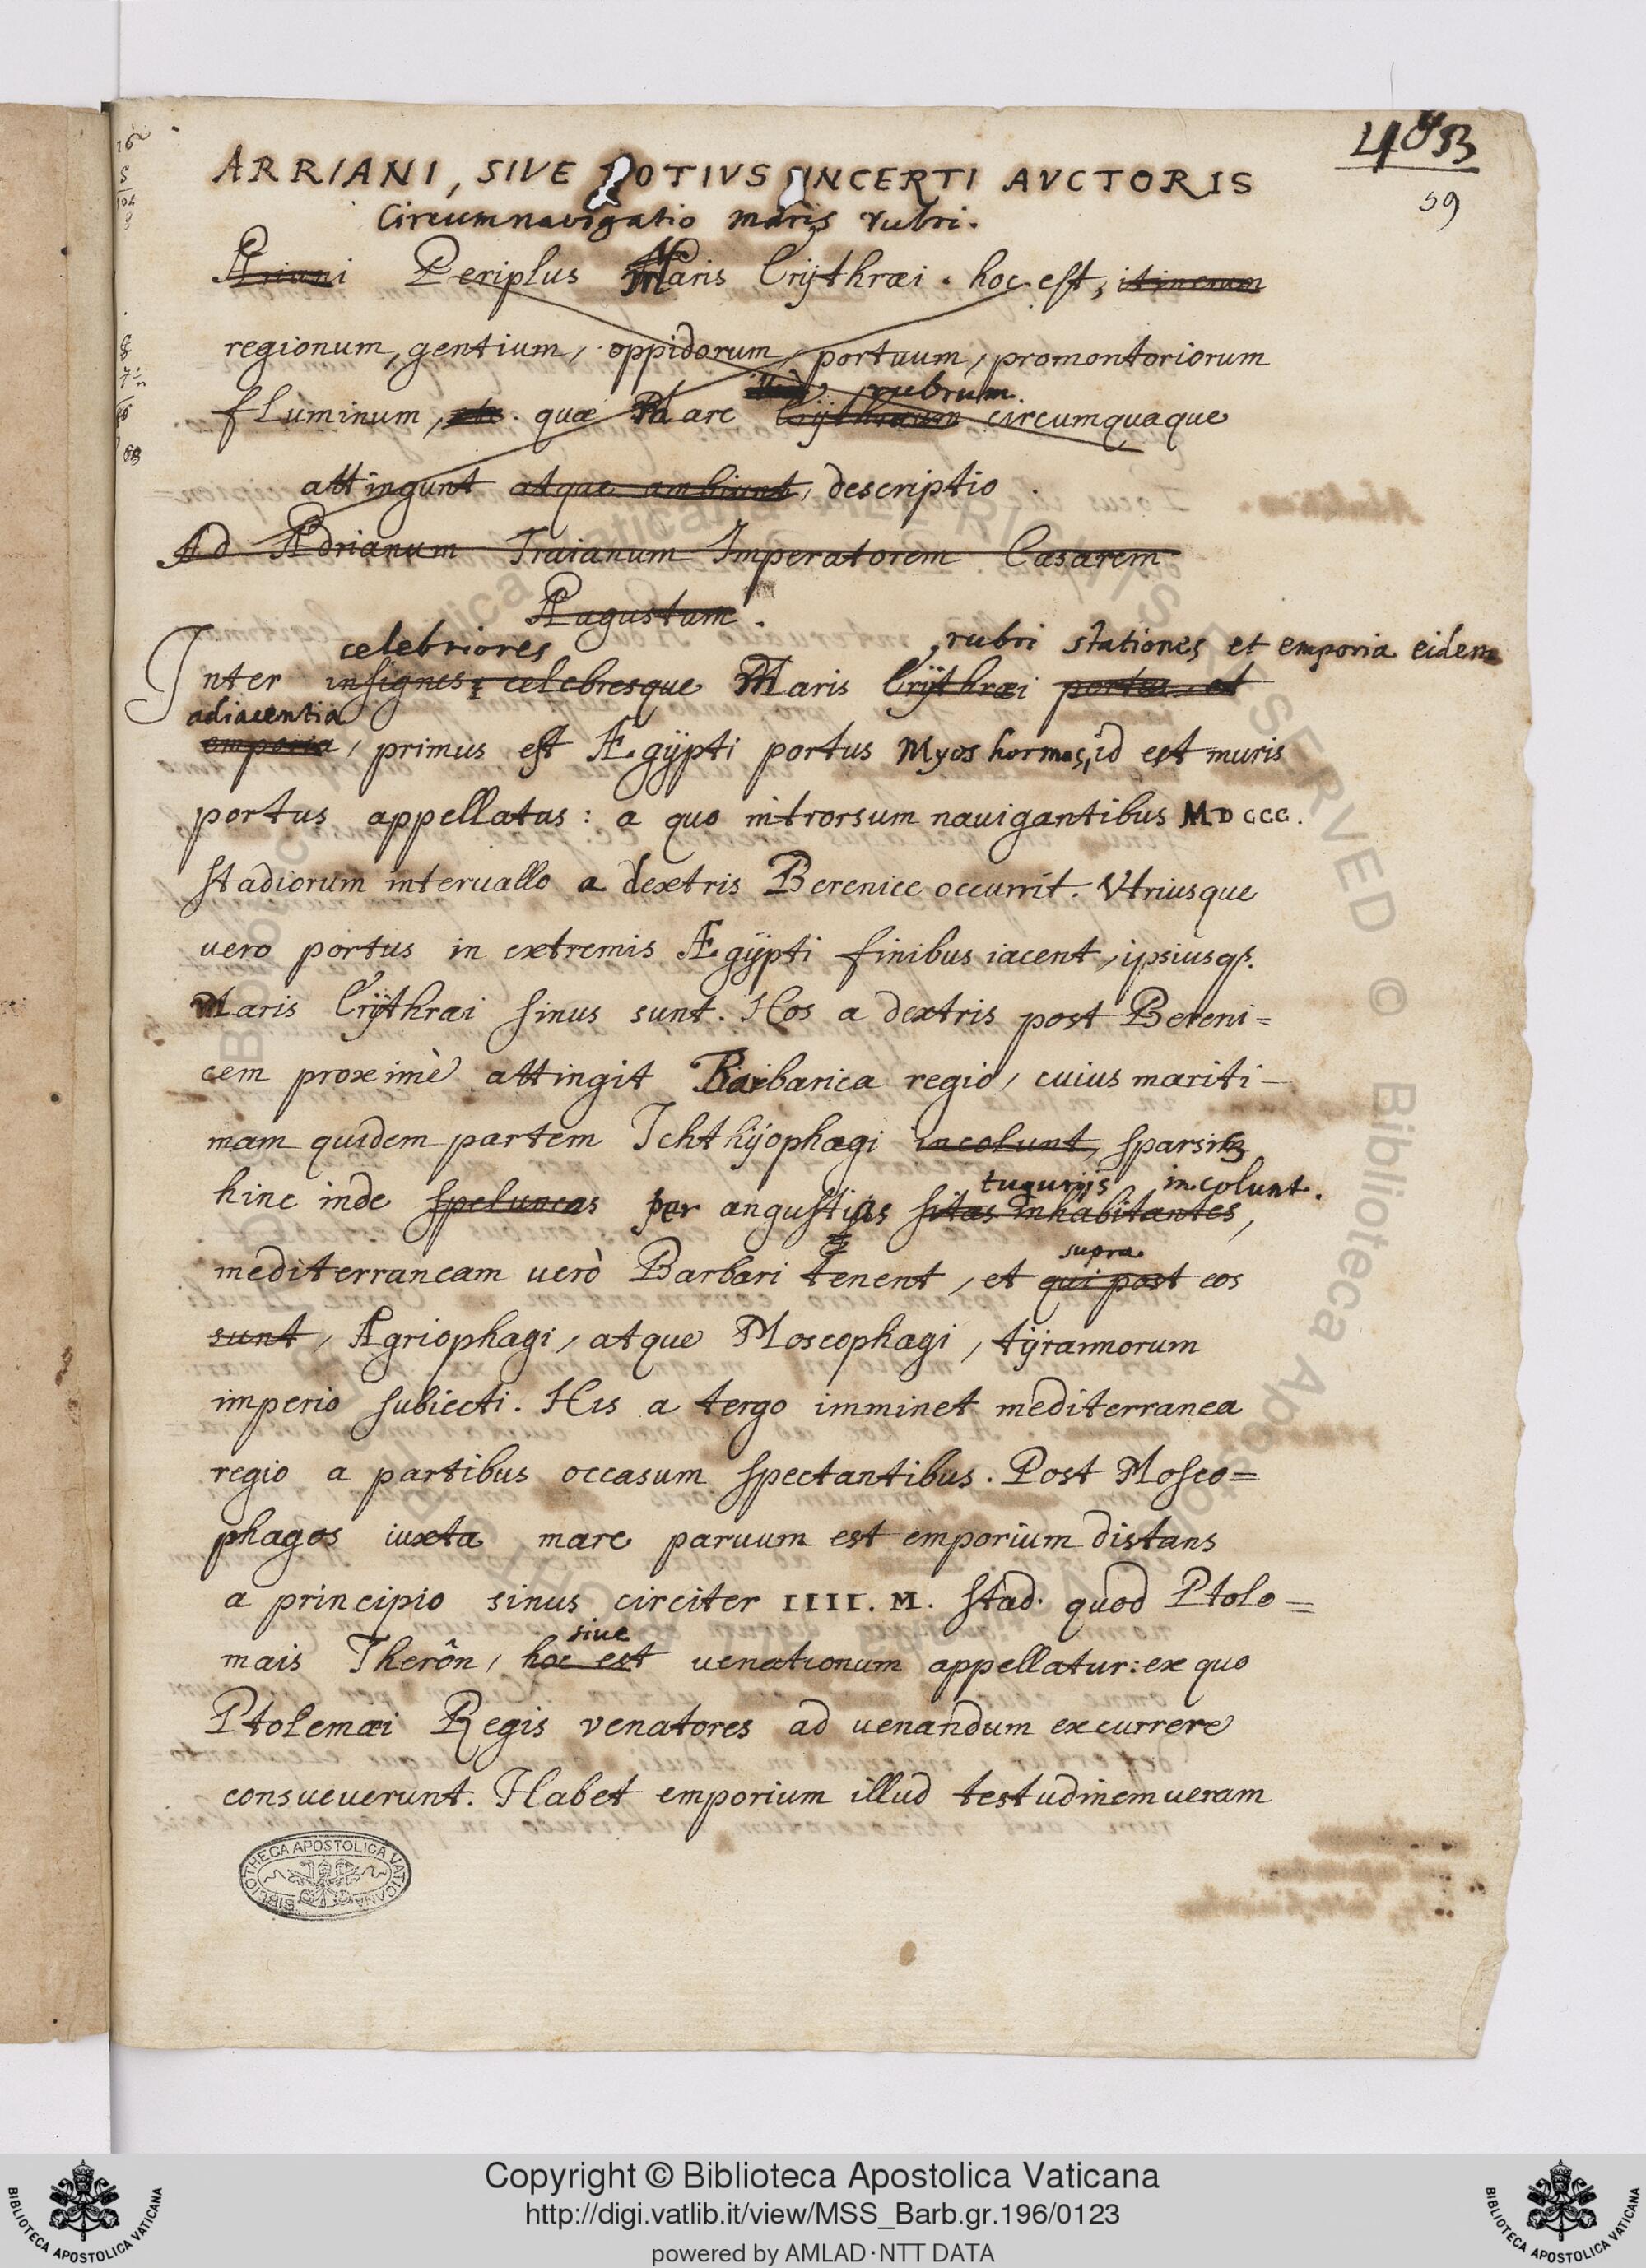 59
ARRIANI, SIVE POTIVS INCERTI AVCTORIS
Circumnavigatio maris rubri.
Ariani Periplus Maris Erÿthræi. hoc est, itinerum
regionum, gentium, oppidorum, portuum, promontoriorum
rubrum
fluminum, etc. quæ Mare Erÿthræum circumquaque
attingunt atque ambiunt, descriptio.
Ad Adrianum Traianum Imperatorem Cæsarem
Augustum.
celebriores rubri stationes et emporia eidem
Inter insignes celebresque Maris Erÿthræi portus et
adiacentia
emporia, primus est Ægÿpti portus Myos hormos, id est muris
portus appellatus: a quo introrsum nauigantibus MDCCC.
stadiorum interuallo a dextris Berenice occurrit. Vtriusque
uero portus in extremis Ægÿpti finibus iacent, ipsiusq3.
Maris Erÿthræi sinus sunt. Hos a dextris post Bereni=
cem proximè attingit Barbarica regio, cuius mariti-
mam quidem partem Ichthÿophagi incolunt, sparsim
tugurijs incolunt.
hinc inde speluncas per angustias sitas inhabitantes,
supra
mediterraneam uerò Barbari tenent, et qui post eos
sunt, Agriophagi, atque Moscophagi, tÿrannorum
imperio subiecti. His a tergo imminet mediterranea
regio a partibus occasum spectantibus. Post Mosco=
phagos iuxta mare paruum est emporium distans
a principio sinus circiter IIII. M. stad. quod Ptole=
siue
mais Therôn, hoc est uenationum appellatur: ex quo
Ptolemæi Regis venatores ad uenandum excurrere
consueuerunt. Habet emporium illud testudinem ueram
BIBLIOTHECA APOSTOLICA VATICANA
Copyright © Biblioteca Apostolica Vaticana
http://digi.vatlib.it/view/MSS_Barb.gr.196/0123
powered by AMLAD·NTT DATA
BIBLIOTECA APOSTOLICA VATICANA
BIBLIOTECA APOSTOLICA VATICANA